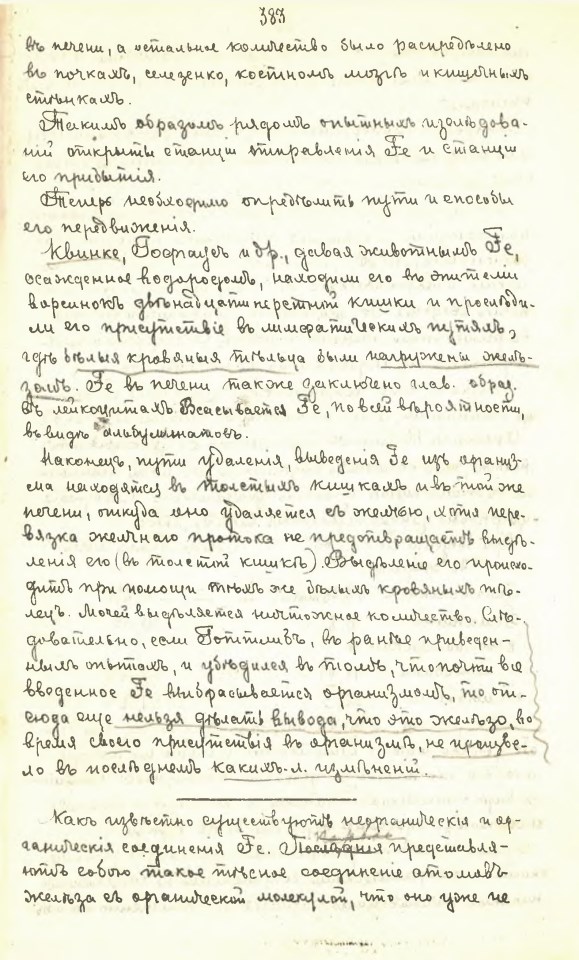 383
въ печени, а остальное количество было распредѣлено
въ почкахъ, селезенко, костномъ мозгѣ и кишечныхъ
стѣнкахъ.
Такимъ образомъ рядомъ опытныхъ изслѣдова-
ній открыты станціи отправленія Fe и станціи
его прибытія.
Теперь необходимо опредѣлить пути и способы
его передвиженія.
Квинке, Гофгауеъ и др., давая животнымъ Fe,
осажденное водородомъ, находили его въ эпителіи
ворсинокъ двѣнадцатиперстной кишки и прослѣди-
ли его присутствіе въ лимфатическихъ путяхъ,
гдѣ бѣлыя кровяныя тѣльца были нагружены желѣ-
зомъ. Fe въ печени также заключено глав. образ.
въ лейкоцитахъ Всасывается Fe, по всей вѣроятности,
въ видѣ альбуминатовъ.
Наконецъ, пути удаленія, выведенія Fe изъ организ-
ма находятся въ толстыхъ кишкахъ и въ той же
печени, откуда оно удаляется съ желчью, хотя пере-
вязка желчнаго протока не предотвращаетъ выдѣ-
ленія его (въ толстой кишкѣ). Выдѣленіе его происхо-
дитъ при помощи тѣхъ же бѣлыхъ кровяныхъ тѣ-
лецъ. Мочей выдѣляется ничтожное количество. Слѣ-
довательно, если Готтлибъ, въ ранѣе приведен-
нымъ опытомъ, и убѣдился въ томъ, что почти все
введенное Fe выбрасывается организмомъ, то от-
сюда еще нельзя дѣлать вывода, что это желѣзо, во
время своего присутствія въ организмѣ, не произве-
ло въ послѣднемъ какихъ-л. измѣненій.
Какъ извѣстно существуютъ неорганическія и ор-
ганическія соединенія Fe. Послѣднія представля-
ютъ собою такое тѣсное соединеніе атомовъ
желѣза съ органической молекулой, что оно уже не